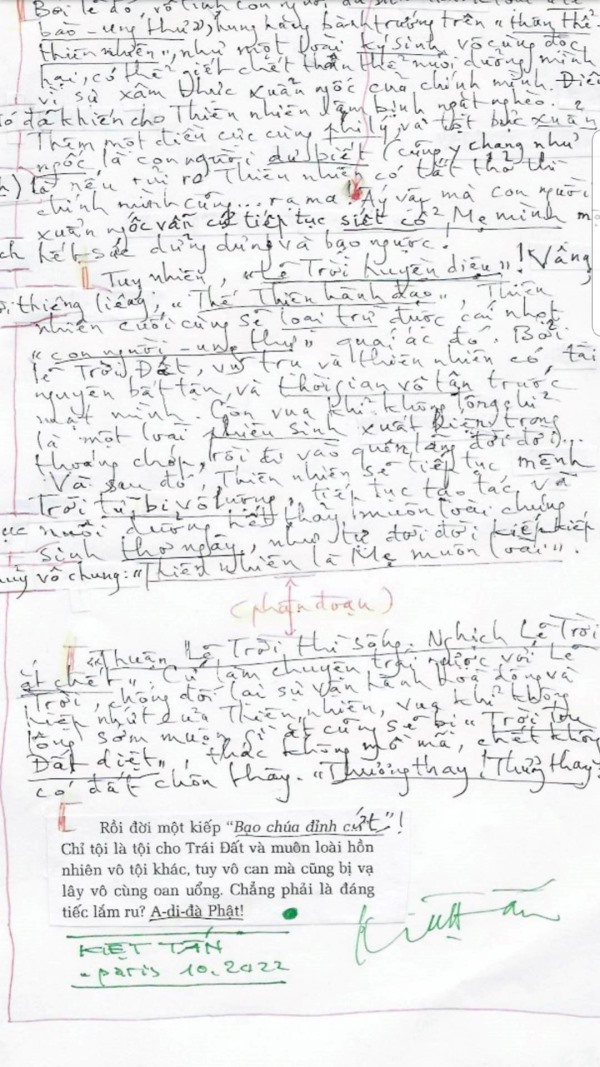 Bởi lẽ đó, vô tình con người
bào - ung thư", hung hăng bành trướng trên "thân thể
thiên nhiên", như một loài ký sinh vô cùng độc
hại, có thể giết chết thân thể nuôi dưỡng mình
vì sự xâm thực xuẩn ngốc của chính mình. Điều
đó đã khiến cho Thiên nhiên lâm bịnh ngặt nghèo.
Thêm một điều cực cùng phi lý và tột bực xuẩn
ngốc là con người dư biết (cũng y chang như
) là nếu rủi ro Thiên nhiên có tắt thở thì
chính mình cũng... ra ma! Ấy vậy mà con người
xuẩn ngốc vẫn cứ tiếp tục siết cổ Mẹ mình một
cách hết sức dửng dưng và bạo ngược!
Tuy nhiên, "Lẽ Trời huyền diệu"! Vâng,
thiêng liêng, "Thế Thiên hành đạo", Thiên
nhiên cuối cùng sẽ loại trừ được cái nhọt
"con người - ung thư" quái ác đó. Bởi
lẽ Trời Đất, vũ trụ và thiên nhiên có tài
nguyên bất tận, và thời gian vô tận trước
mặt mình. Còn vua khỉ không lông chỉ
là một loài phiêu sinh xuất hiện trong
thoáng chốp, rồi đi vào quên lãng đời đời...
Và sau đó, Thiên nhiên sẽ tiếp tục mệnh
Trời từ bi vô lượng, tiếp tục tạo tác và
nuôi dưỡng hết thảy muôn loài chúng
sinh thơ ngây, như tự đời đời kiếp kiếp
thủy vô chung: "Thiên nhiên là Mẹ muôn loài".
(phân đoạn)
"Thuận Lẽ Trời thì sống. Nghịch Lẽ Trời
ắt chết". Cứ làm chuyện trái ngược với Lẽ
Trời, chống đối lại sự vận hành hoà đồng và
hiệp nhứt của Thiên nhiên, vua khỉ không
lông sớm muộn gì ắt cũng sẽ bị "Trời tru
Đất diệt", thác không mồ mã, chết không
có đất chôn thây. "Thương thay! Thương thay!
Rồi đời một kiếp "Bạo chúa đỉnh cứt"!
Chỉ tội là tội cho Trái Đất và muôn loài hồn
nhiên vô tội khác, tuy vô can mà cũng bị vạ
lây vô cùng oan uổng. Chẳng phải là đáng
tiếc lắm ru? A-di-đà Phật!
KIỆT TẤN
- paris 10.2022
Kiệt Tấn